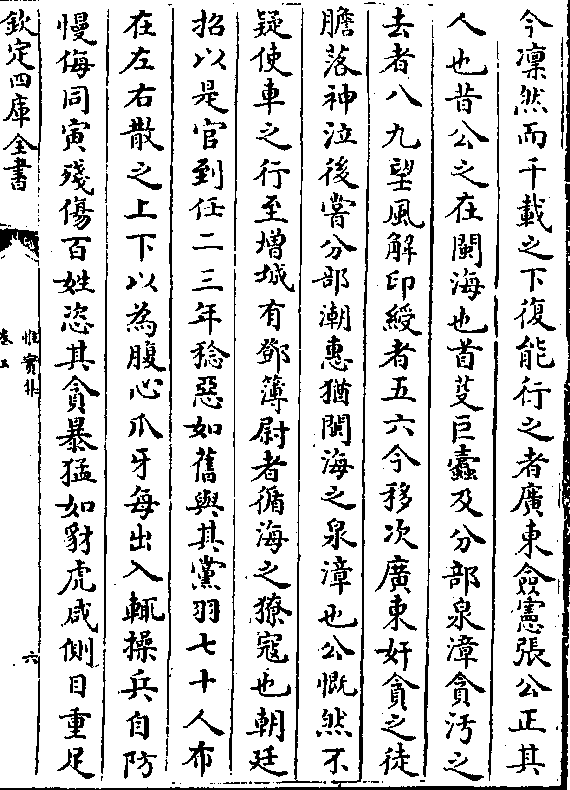 今凛然而千載之下復能行之者廣東僉憲張公正其
人也昔公之在閩海也首芟巨蠧及分部泉漳貪汚之
去者八九望風解印綬者五六今移次廣東奸貪之徒
膽落神泣後嘗分部潮惠猶閩海之泉漳也公慨然不
疑使車之行至增城有鄧簿尉者循海之獠寇也朝廷
招以是官到任二三年稔惡如舊與其黨羽七十人布
在左右散之上下以為腹心爪牙每出入輒操兵自防
慢侮同寅殘傷百姓恣其貪暴猛如豺虎咸側目重足
欽定四庫全書
惟實集
卷五
六